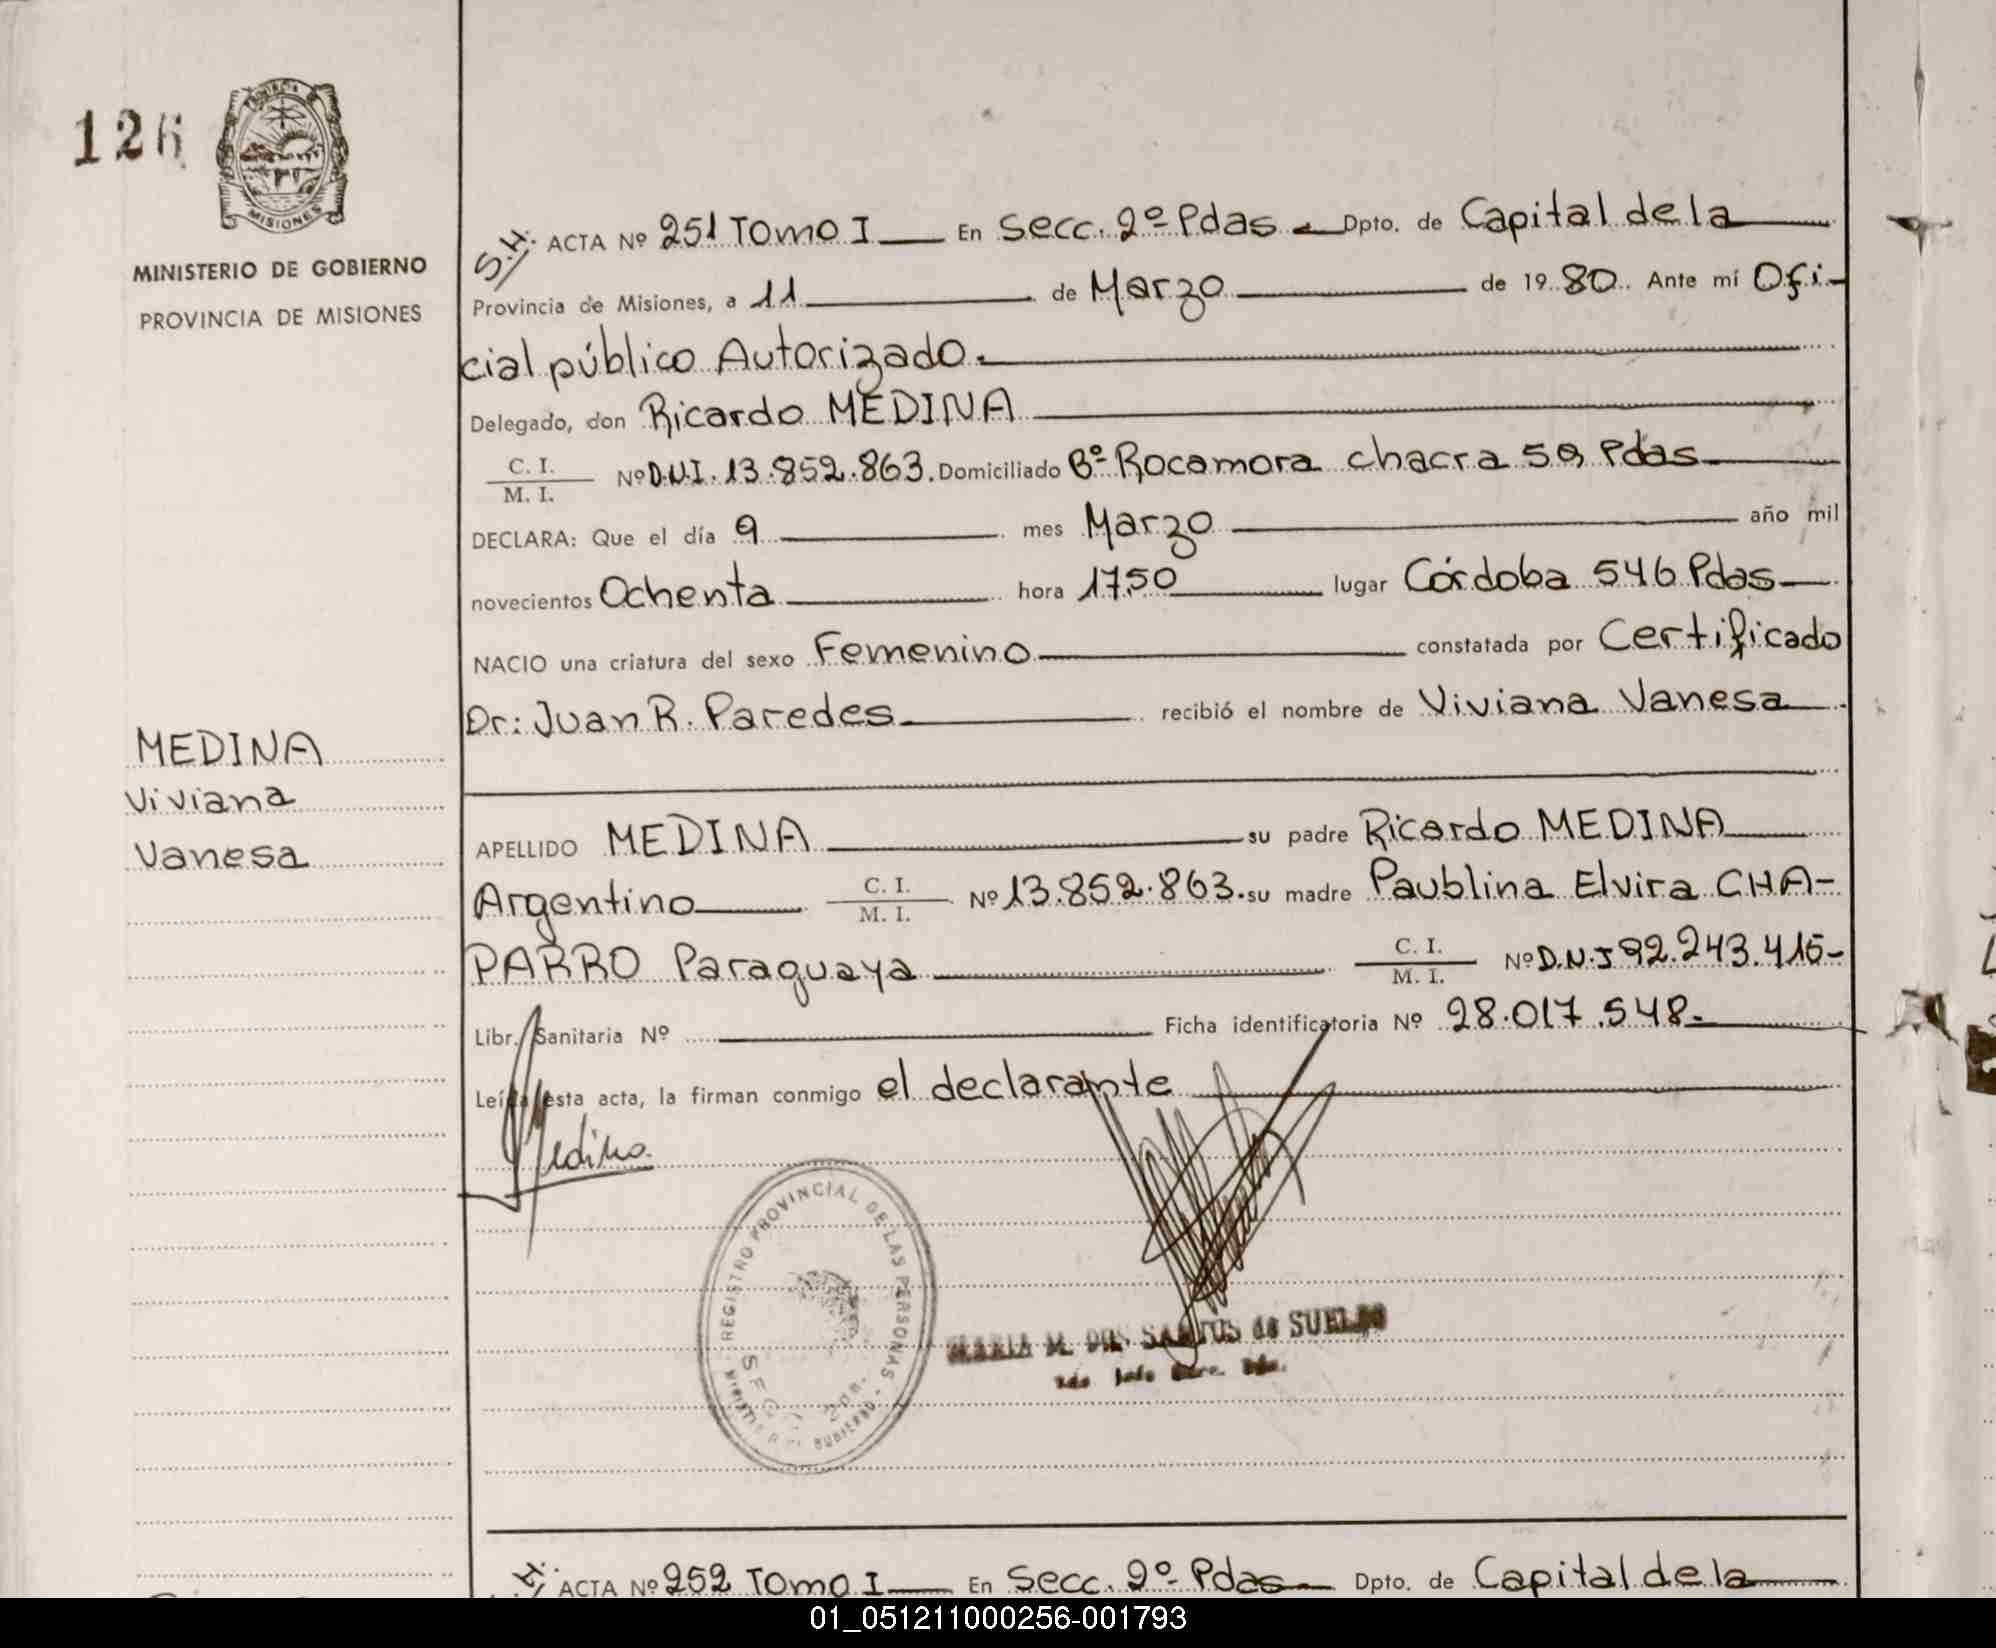 126
PROVINCIA
MISIONES
MINISTERIO DE GOBIERNO
PROVINCIA DE MISIONES
MEDINA
Viviana
Vanesa
S.H. ACTA Nº 251 Tomo I En Secc. 2º Pdas Dpto. de Capital de la
Provincia de Misiones, a 11 de Marzo de 19 80. Ante mí Ofi-
cial público Autorizado.
Delegado, don Ricardo MEDINA
C. I.
M. I. Nº D.N.I. 13.852.863. Domiciliado Bº Rocamora chacra 59 Pdas
DECLARA: Que el día 9 mes Marzo año mil
novecientos Ochenta hora 17,50 lugar Córdoba 546 Pdas
NACIO una criatura del sexo Femenino constatada por Certificado
Dr: Juan R. Paredes recibió el nombre de Viviana Vanesa
APELLIDO MEDINA su padre Ricardo MEDINA
Argentino C. I.
M. I. Nº 13.852.863. su madre Paublina Elvira CHA-
PARRO Paraguaya C. I.
M. I. Nº D.N.I 92.243.415-
Libr. Sanitaria Nº Ficha identificatoria Nº 28.017.548.
Leída esta acta, la firman conmigo el declarante
Medina
REGISTRO PROVINCIAL DE LAS PERSONAS
GOBIERNO
MARIA M. DOS SANTOS de SUELDO
ACTA Nº 252 Tomo I En Secc. 2º Pdas Dpto. de Capital de la
01_051211000256-001793